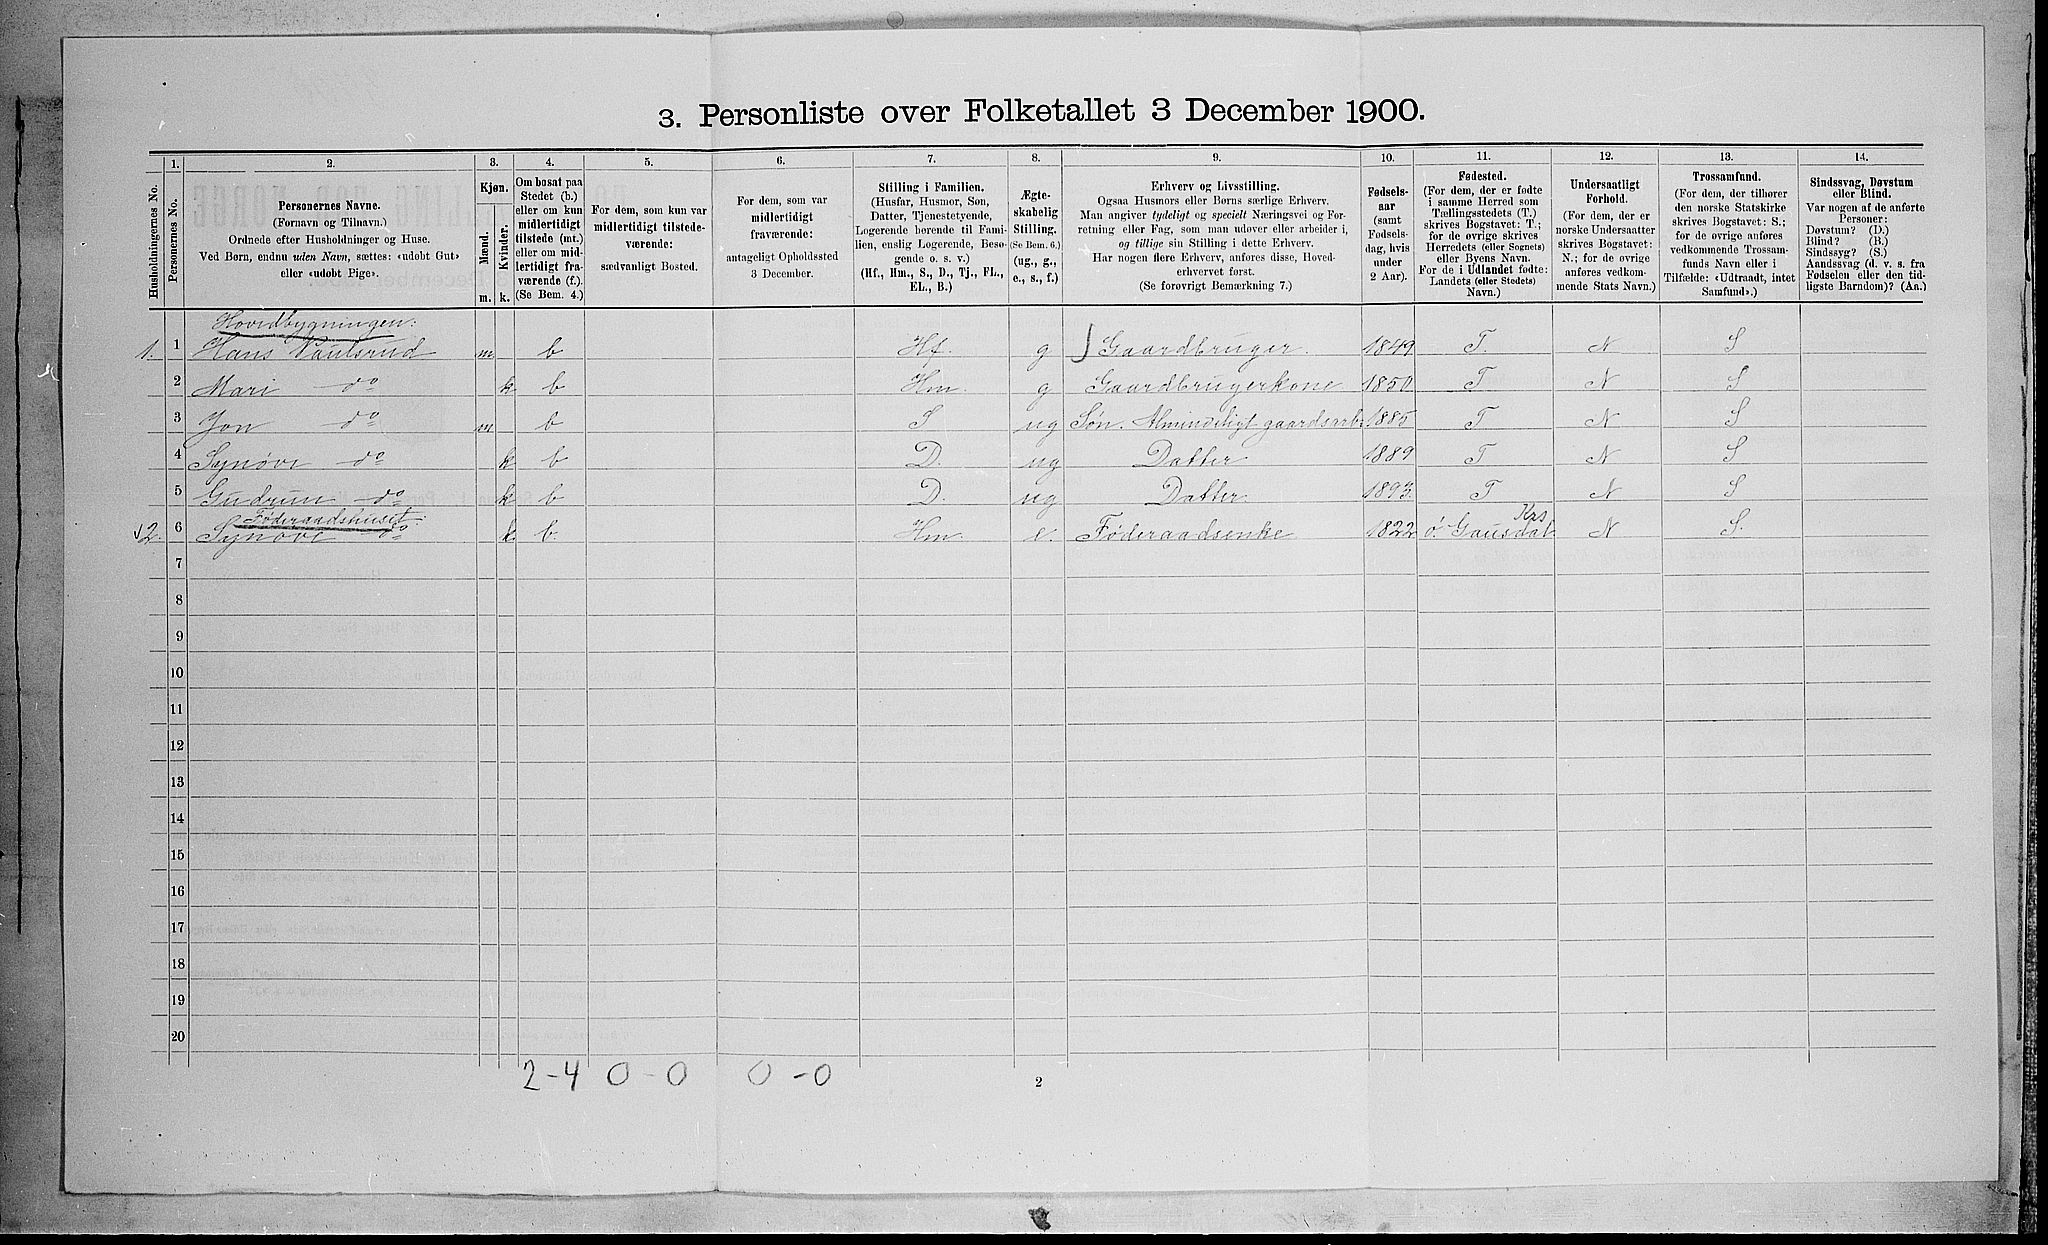 3. Personliste over Folketallet 3 December 1900.
Husholdningernes No.
1.
Personernes No.
2.
Personernes Navne.
(Fornavn og Tilnavn.)
Ordnede efter Husholdninger og Huse.
Ved Børn, endnu uden Navn, sættes: «udøbt Gut»
eller «udøbt Pige».
3.
Kjøn.
Mænd.
Kvinder.
m. k.
4.
Om bosat paa
Stedet (b.)
eller om kun
midlertidigt
tilstede (mt.)
eller om mid-
lertidigt fra-
værende (f.).
(Se Bem. 4.)
5.
For dem, som kun var
midlertidigt tilstede-
værende:
sædvanligt Bosted.
6.
For dem, som var
midlertidigt
fraværende:
antageligt Opholdssted
3 December.
7.
Stilling i Familien.
(Husfar, Husmor, Søn,
Datter, Tjenestetyende,
Logerende hørende til Fami-
lien, enslig Logerende, Besø-
gende o. s. v.)
(Hf., Hm., S., D., Tj., FL.,
EL., B.)
8.
Ægte-
skabelig
Stilling.
(Se Bem. 6.)
(ug., g.,
e., s., f.)
9.
Erhverv og Livsstilling.
Ogsaa Husmors eller Børns særlige Erhverv.
Man angiver tydeligt og specielt Næringsvei og For-
retning eller Fag, som man udøver eller arbeider i,
og tillige sin Stilling i dette Erhverv.
Har nogen flere Erhverv, anføres disse, Hoved-
erhvervet først.
(Se forøvrigt Bemærkning 7.)
10.
Fødsels-
aar
(samt
Fødsels-
dag, hvis
under
2 Aar).
11.
Fødested.
(For dem, der er fødte
i samme Herred som
Tællingsstedets (T.)
skrives Bogstavet: T.;
for de øvrige skrives
Herredets (eller Sognets)
eller Byens Navn.
For de i Udlandet fødte:
Landets (eller Stedets)
Navn.)
12.
Undersaatligt
Forhold.
(For dem, der er
norske Undersaatter
skrives Bogstavet:
N.; for de øvrige
anføres vedkom-
mende Stats Navn.)
13.
Trossamfund.
(For dem, der tilhører
den norske Statskirke
skrives Bogstavet: S.;
for de øvrige anføres
vedkommende Trossam-
funds Navn eller i
Tilfælde: «Udtraadt, intet
Samfund».)
14.
Sindssvag, Døvstum
eller Blind.
Var nogen af de anførte
Personer:
Døvstum? (D.)
Blind? (B.)
Sindssyg? (S.)
Aandssvag (d. v. s. fra
Fødselen eller den tid-
ligste Barndom)? (Aa.)
Hovedbygningen:
1. 1 Hans Paulsrud m. b Hf. g Gaardbruger. 1849 T. N S
2 Mari do k b Hm. g Gaardbrugerkone 1850 T N S
3 Jon do m b S ug Søn. Almindeligt gaardsarb. 1885 T N S
4 Synøve do k b D. ug Datter 1889 T N S
5 Gudrun do k b D. ug Datter 1893. T N S
Føderaadshuset
2. 6 Synøve do k b. Hm. e. Føderaadsenke 1822 ö. Gausdal Krs N S.
7
8
9
10
11
12
13
14
15
16
17
18
19
20
2-4 0-0 0-0
2